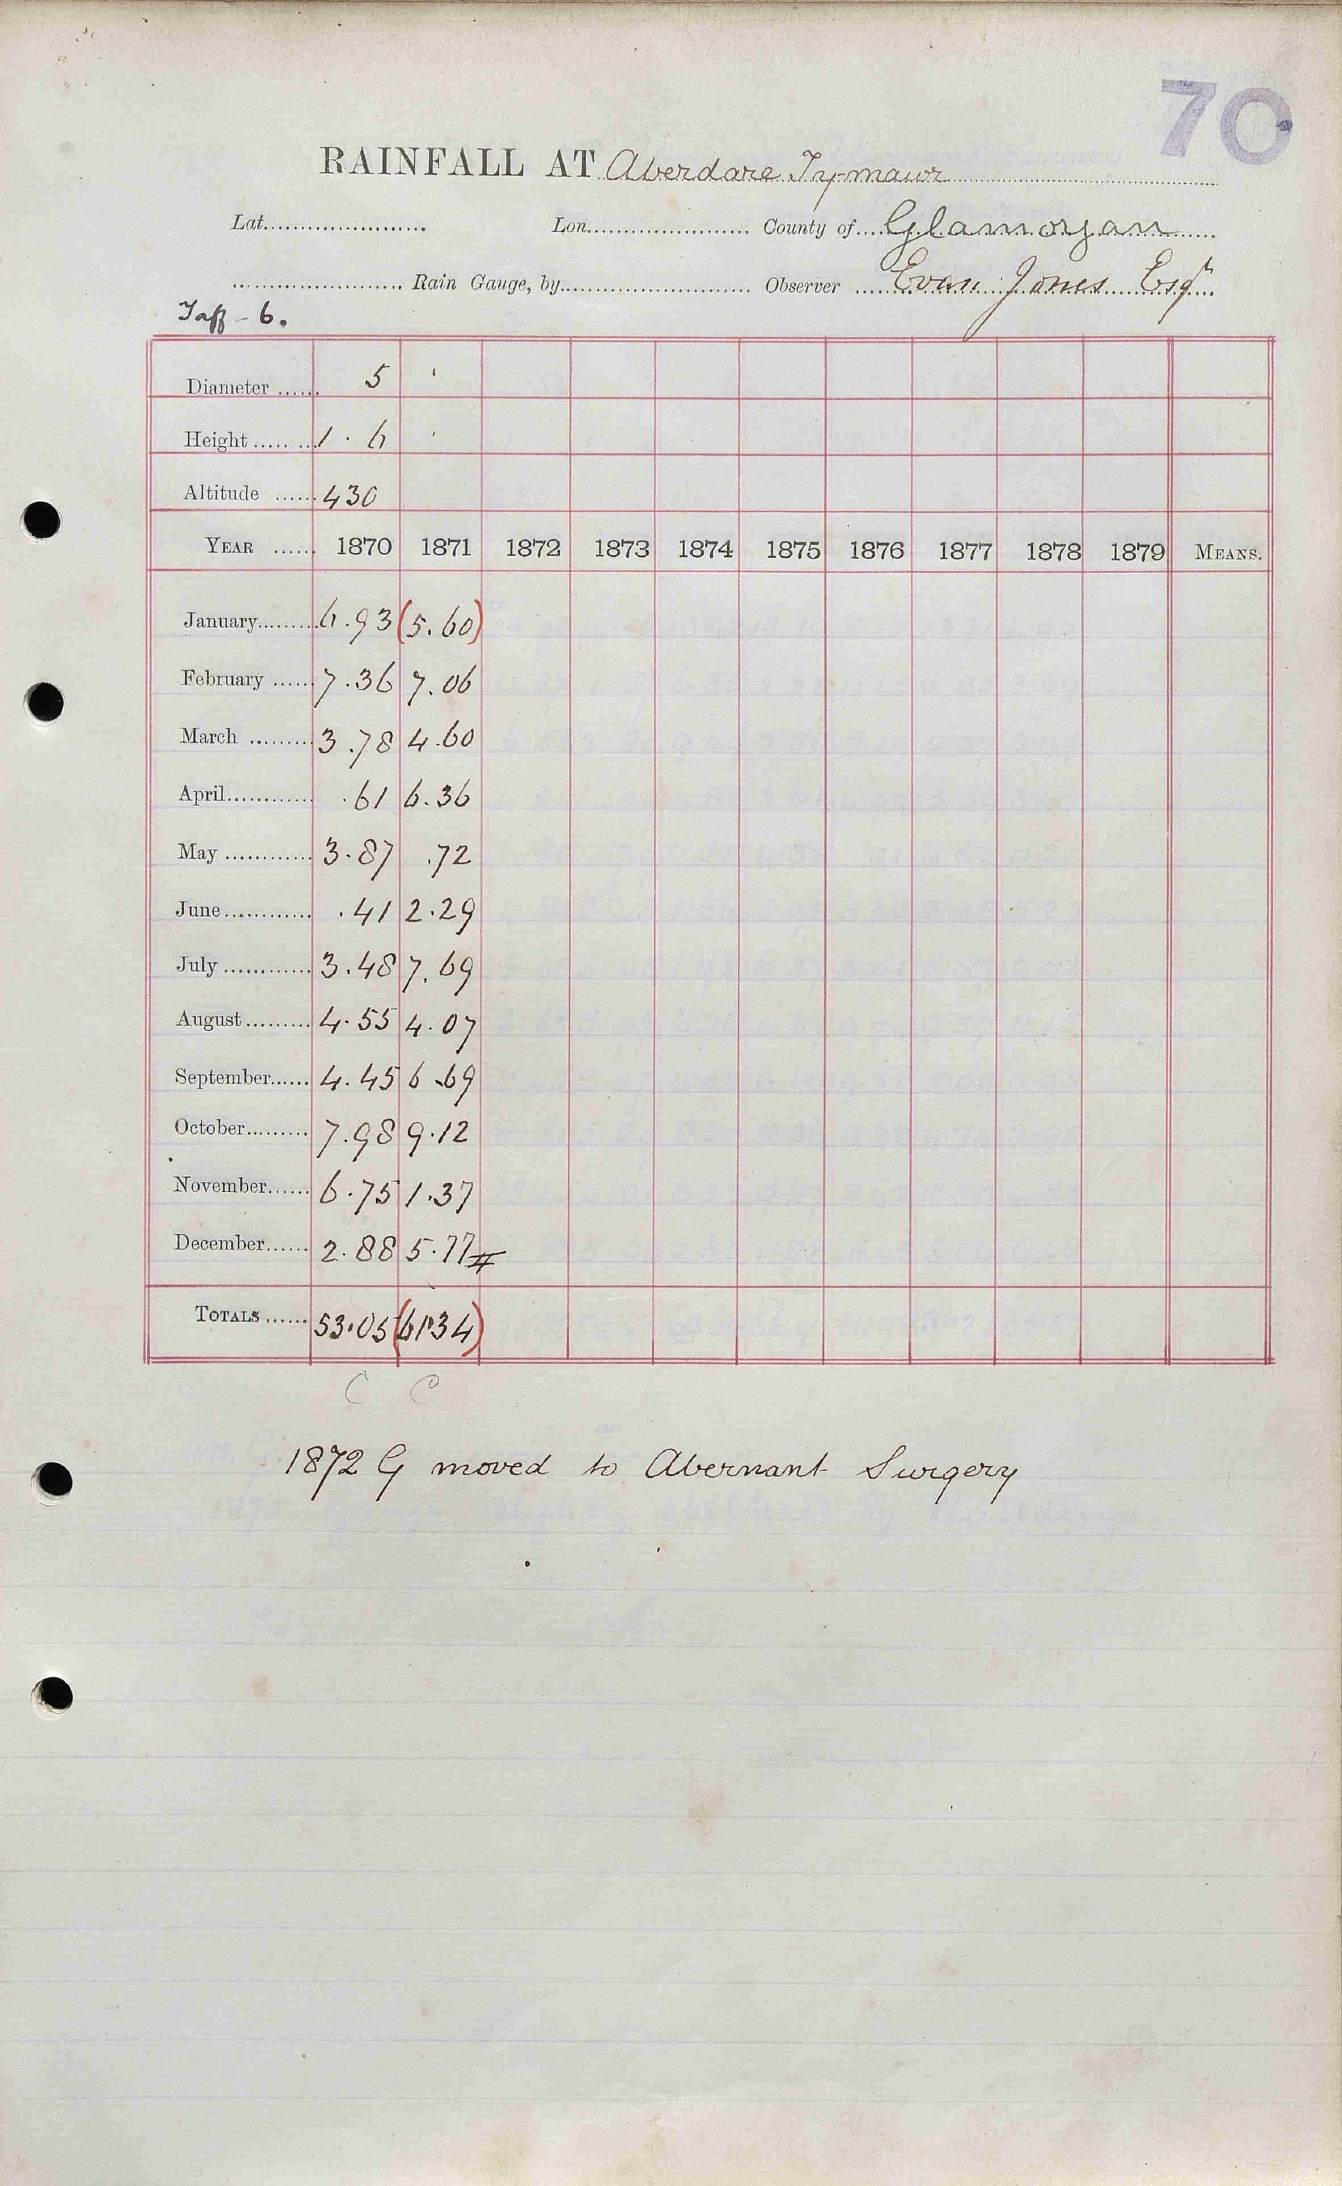 70
RAINFALL AT Aberdare Ty-mawr
Lat. Lon. County of Glamorgan
Rain Gauge, by Observer Evan Jones Esqr
Taff - 6.
Diameter 5 '
Height 1 . 6 '
Altitude 430
YEAR 1870 1871 1872 1873 1874 1875 1876 1877 1878 1879 MEANS.
January 6.93 (5.60)
February 7.36 7.06
March 3.78 4.60
April .61 6.36
May 3.87 .72
June .41 2.29
July 3.48 7.69
August 4.55 4.07
September 4.45 6.69
October 7.98 9.12
November 6.75 1.37
December 2.88 5.77
TOTALS 53.05 (61.34)
C C
1872 G moved to Abernant Surgery